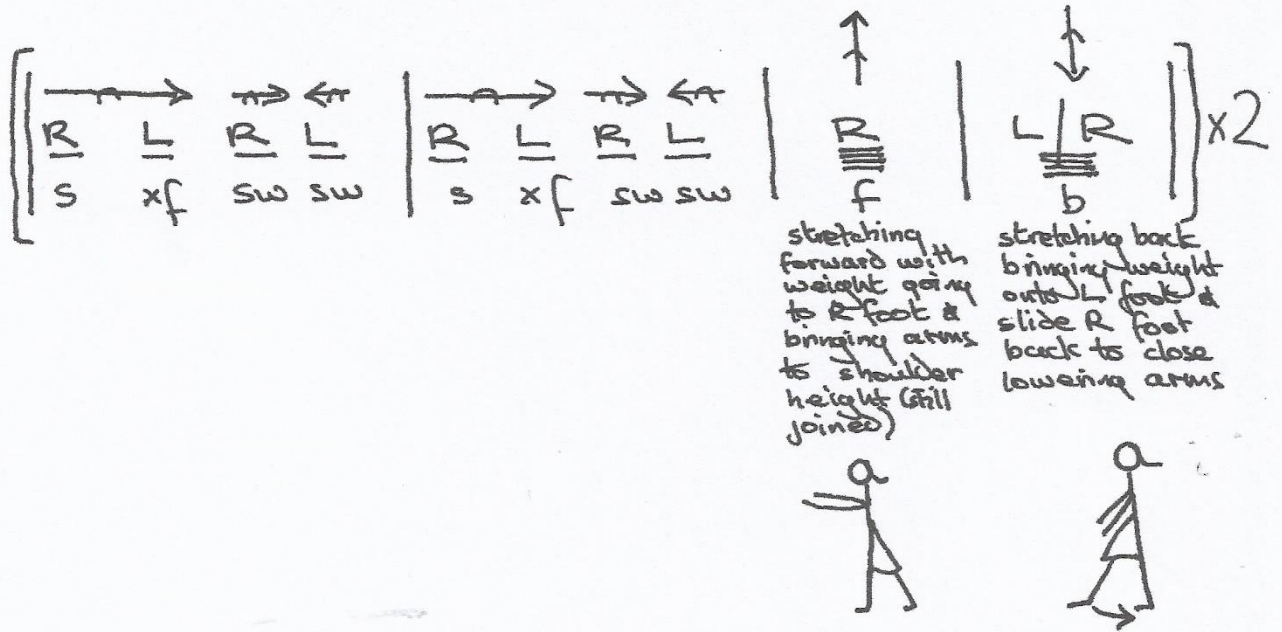 R L R L R L R L R L R x2
s xf sw sw s xf sw sw f b
stretching
forward with
weight going
to R foot &
bringing arms
to shoulder
height (still
joined)
stretching back
bringing weight
onto L foot &
slide R foot
back to close
lowering arms